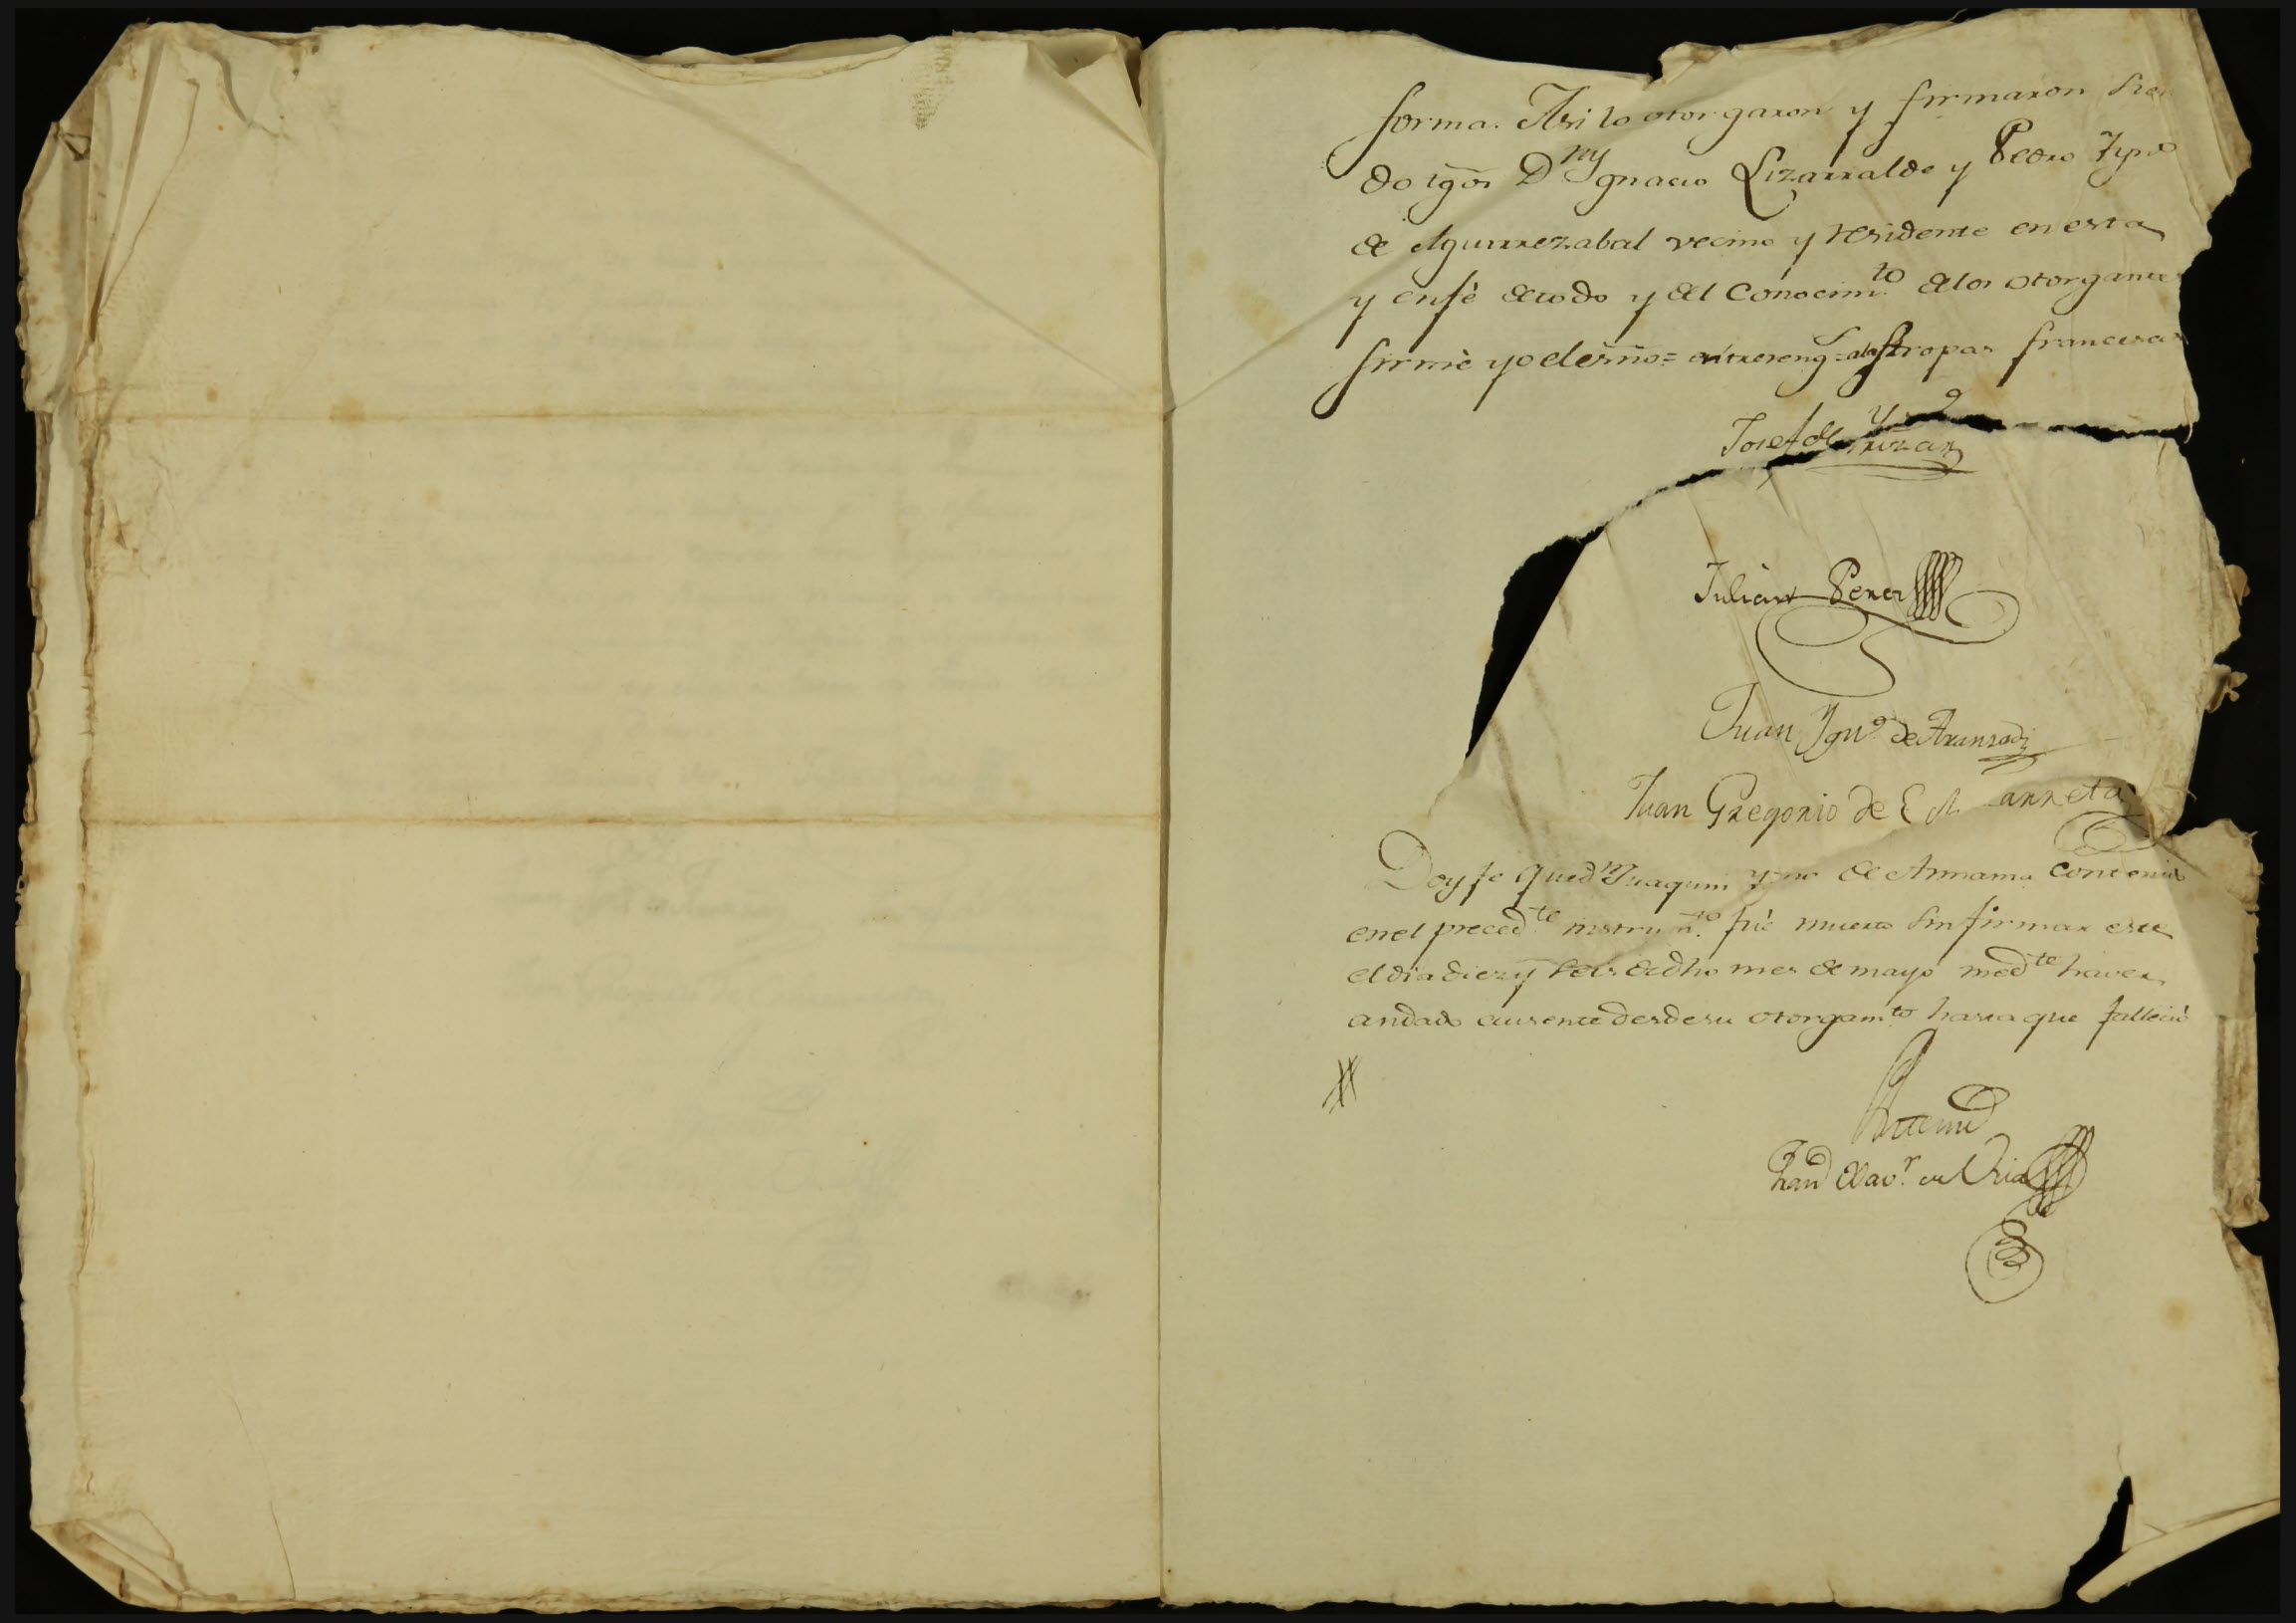 forma. Asi lo otorgaron y firmaron sien
do tgõs Dⁿ Ygnacio Lizarralde y Pedro Ygnº
de Aguirrezabal vecino y residente en esta
y en fé de todo y del Conocimᵗº delos otorgantes
firmé yo el essñō = entrereng = alas tropas francesas
Josef de
Julian Perez
Juan Ygnº de Aranzadi
Juan Gregorio de arreta
Doy fe que dⁿ Juaquin Ygnº de Armama contenido
en el precedᵗᵉ instrumᵗº fué muerto sin firmar este
el dia diez y seis de dho mes de mayo medᵗᵉ haver
andado ausente desde su otorgamᵗº hasta que falleció
Franº Xavʳ de Oria